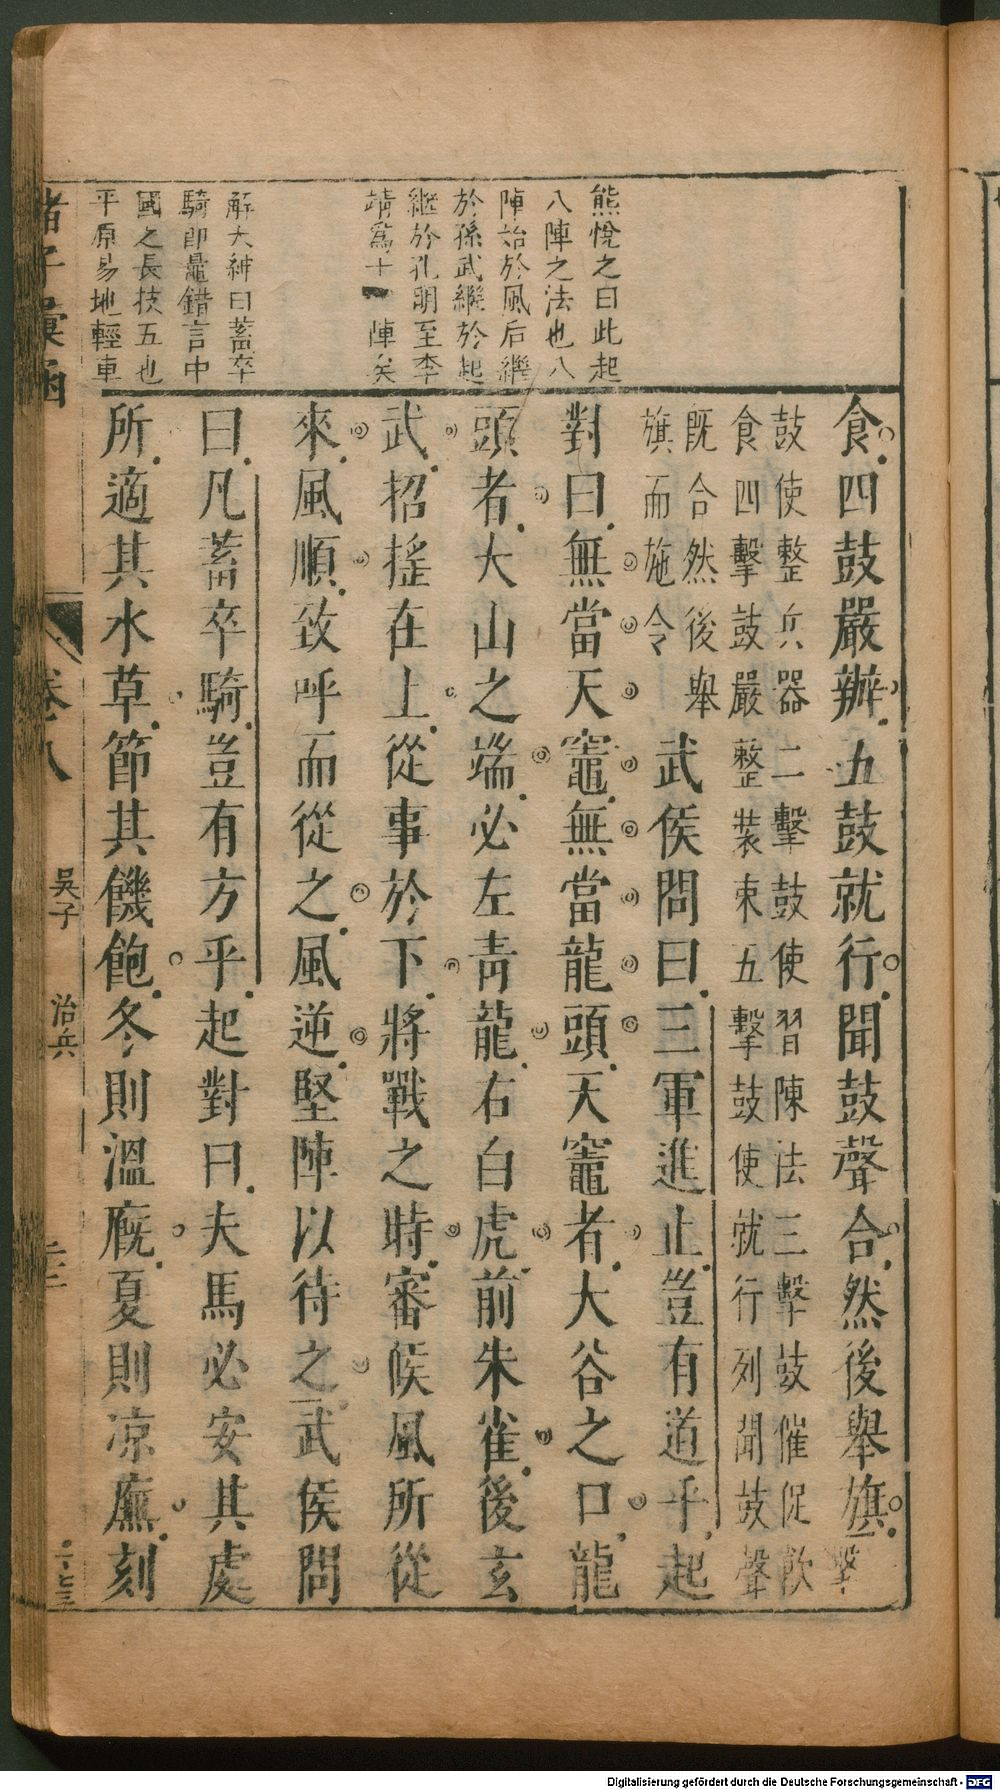 熊悅之曰此起
八陣之法也八
陣始於風后繼
於孫武繼於起
繼於孔明至李
靖爲十一陣矣
解大紳曰蓄卒
騎卽鼂錯言中
國之長技五也
平原易地輕車
食四鼓嚴辦五鼓就行聞鼓聲合然後舉旗一擊
鼓使整兵器二擊鼓使習陳法三擊鼓催促飲
食四擊鼓嚴整裝束五擊鼓使就行列聞鼓聲
旣合然後舉
旗而施令
武侯問曰三軍進止豈有道乎起
對曰無當天竈無當龍頭天竈者大谷之口龍
頭者大山之端必左靑龍右白虎前朱雀後玄
武招搖在上從事於下將戰之時審候風所從
來風順致呼而從之風逆堅陣以待之武侯問
曰凡蓄卒騎豈有方乎起對曰夫馬必安其處
所適其水草節其饑飽冬則溫廐夏則凉廡刻
諸子彙函
卷八
吳子
治兵
Digitalisierung gefördert durch die Deutsche Forschungsgemeinschaft - DFG